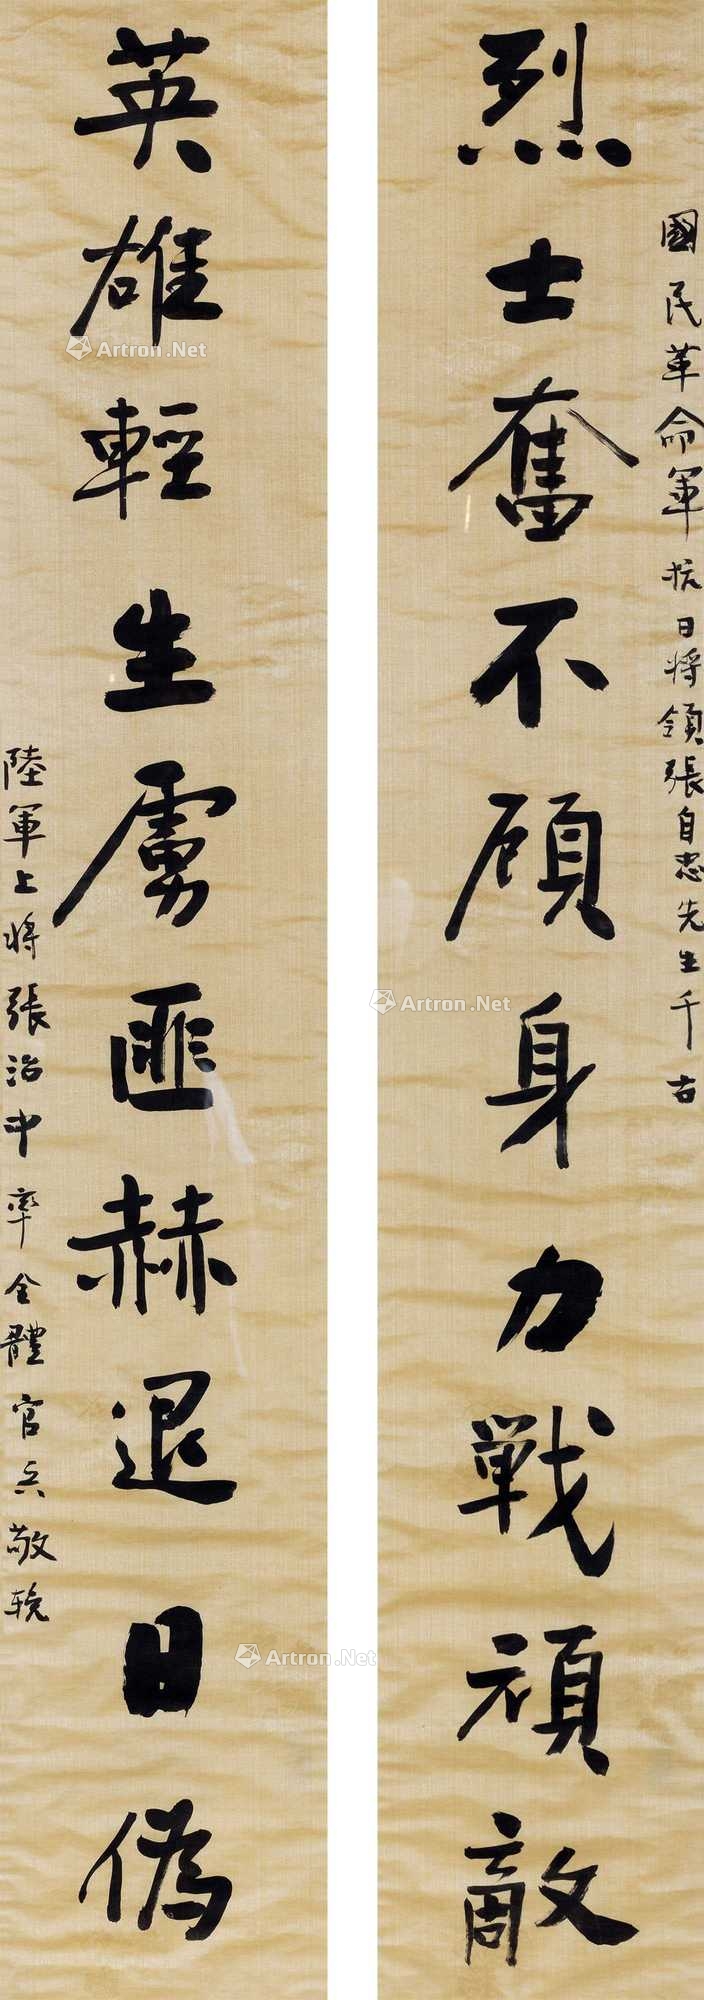 國民革命軍抗日將領張自忠先生千古
烈士奮不顧身力戰頑敵
英雄輕生虜匪赫退日偽
陸軍上將張治中率全體官兵敬輓
Artron.Net
Artron.Net
Artron.Net